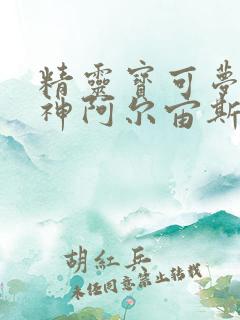 精靈寶可夢
神阿尔宙斯
胡紅兵
未經同意禁止转载